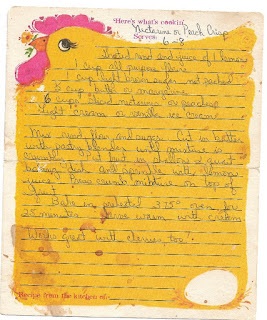 Here's what's cookin' Nectarine or Peach Crisp
Serves 6-8
Grated rind and juice of 1 lemon
1 cup all purpose flour
1 cup light brown sugar not packed
cup butter or margarine
6 cups sliced nectarines or peaches
light cream or vanilla ice cream
Mix rind, flour and sugar. Cut in butter
with pastry blender until mixture is
crumbly. Put fruit in shallow 2 quart
baking dish and sprinkle with lemon
juice. Press crumb mixture on top of
fruit.
Bake in preheated 375° oven for
minutes. Serve warm with cream
Works great with cherries too.
Recipe from the kitchen of: